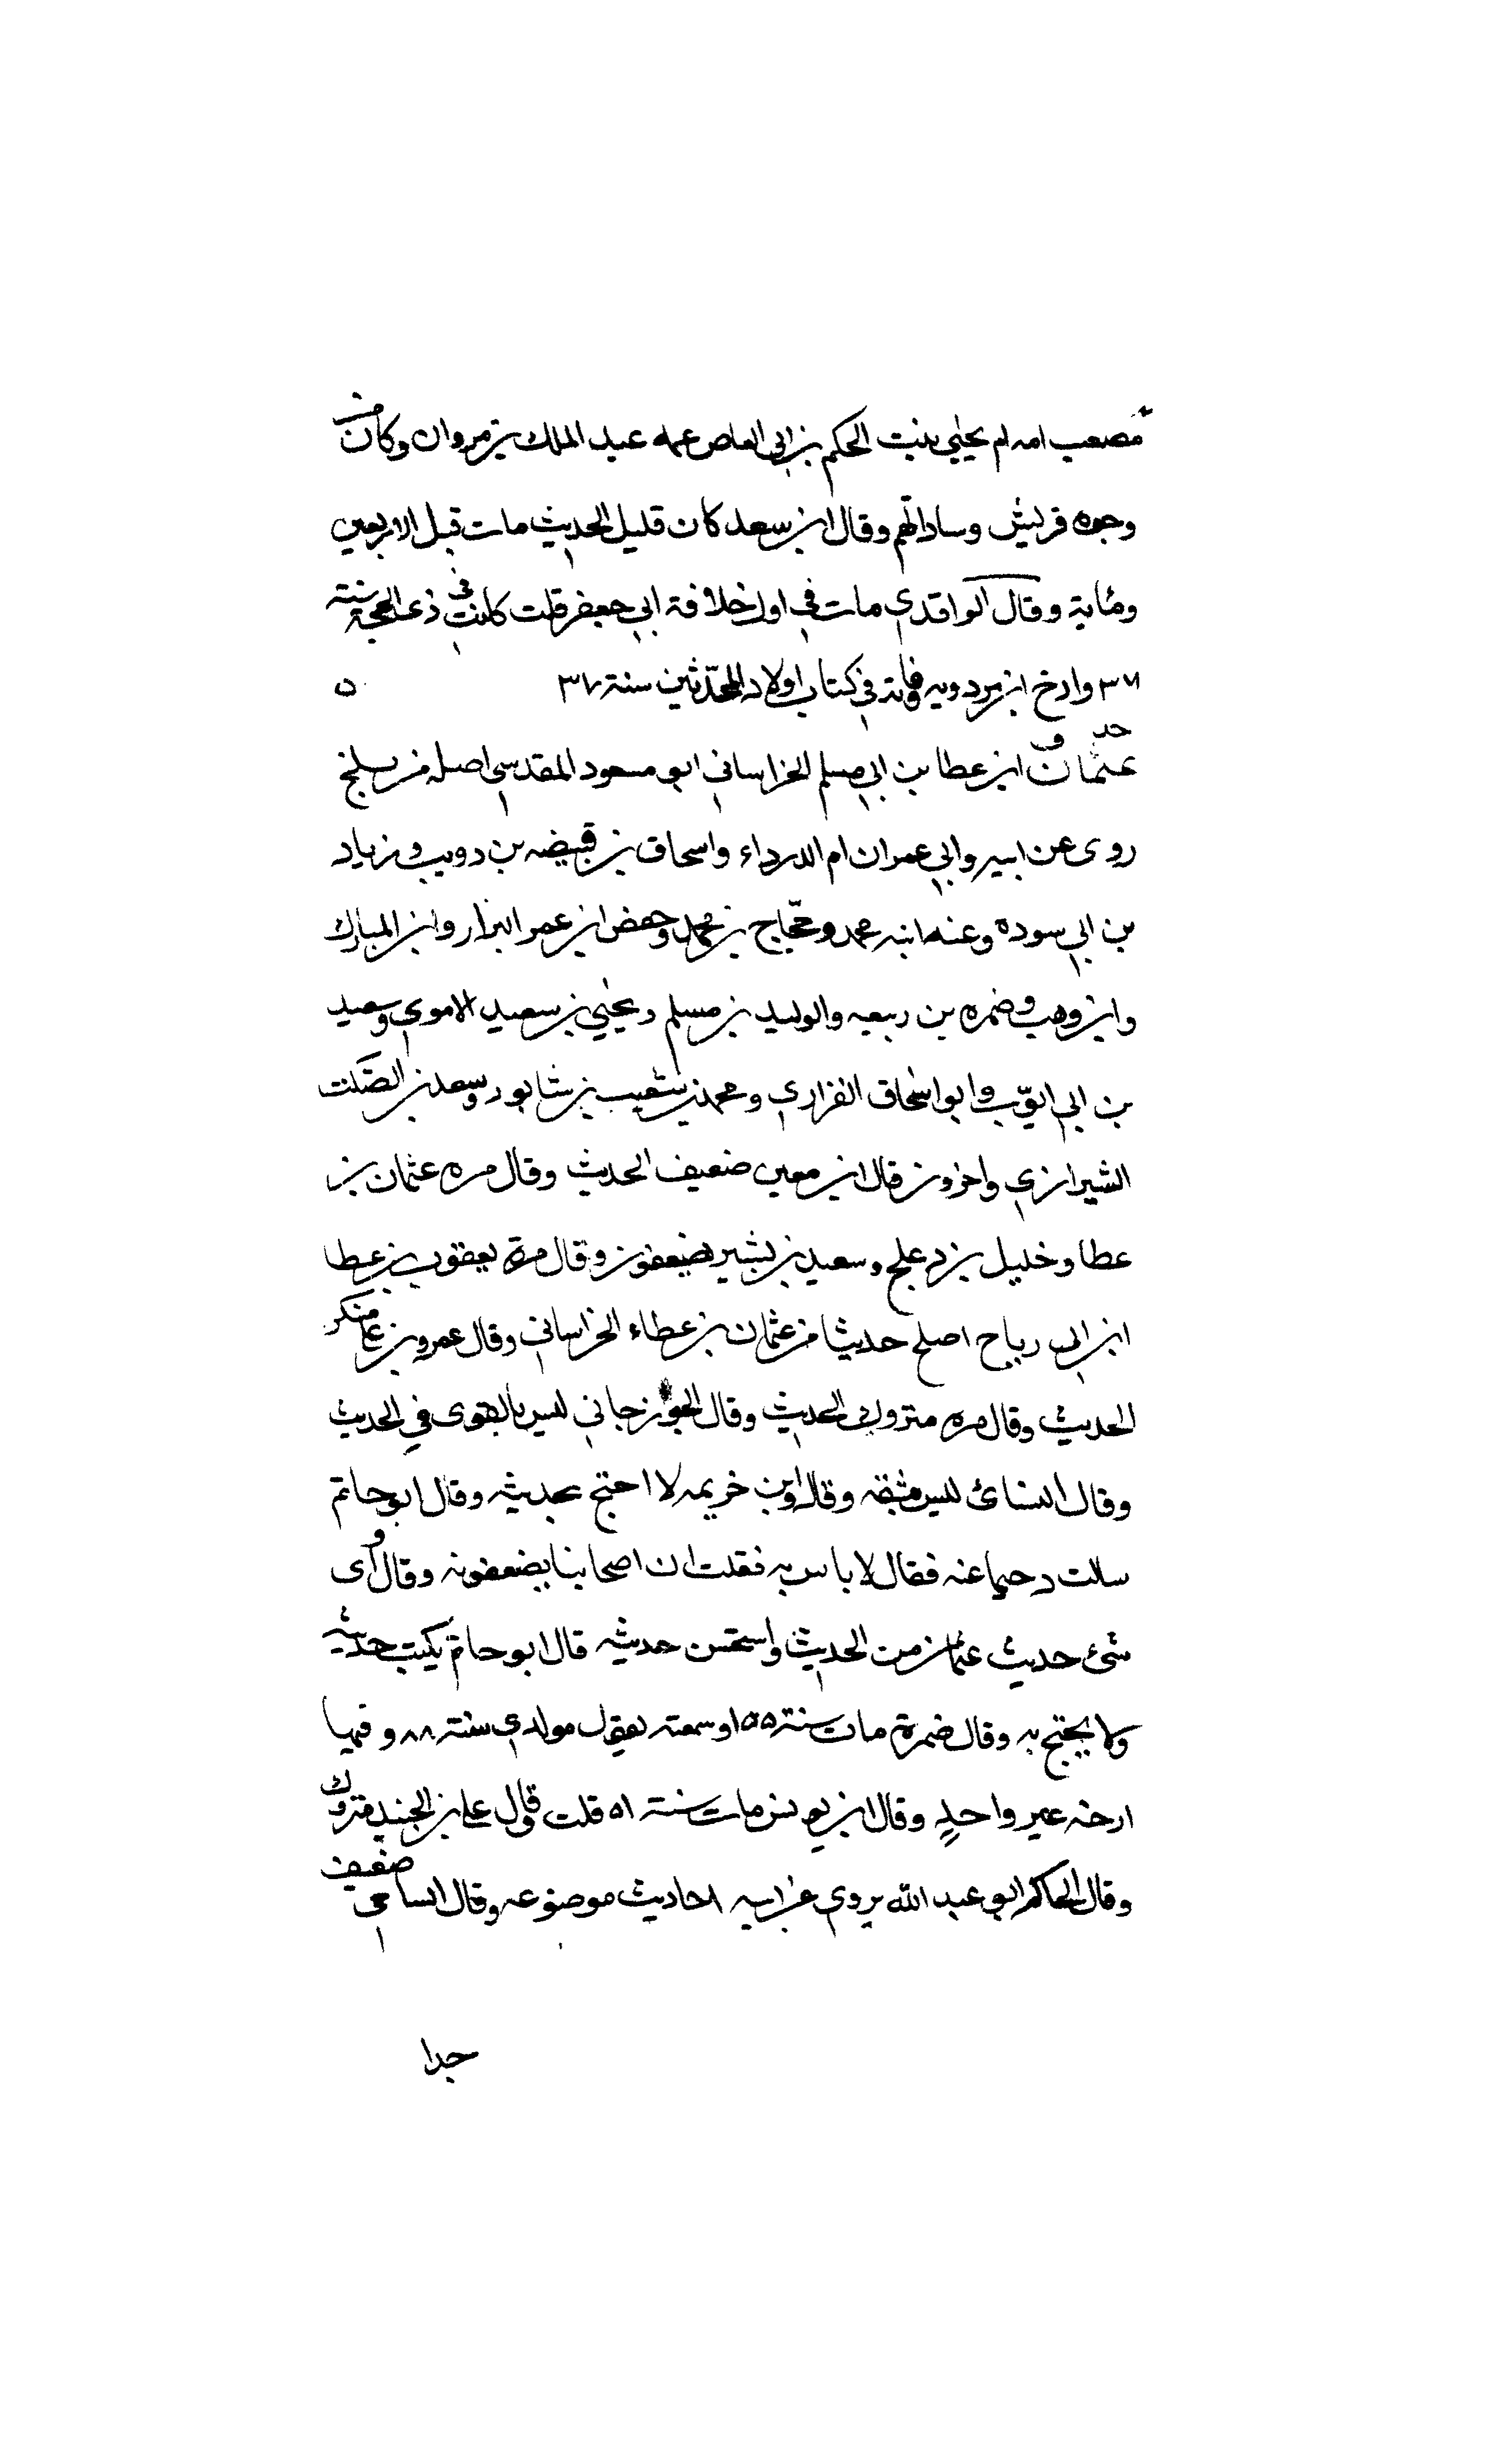 مصعب امه ام يحيى بنت الحكم بن ابي العاص عمه عبد الملك بن مروان وكان من
وجوه قريش وساداتهم وقال ابن سعد كان قليل الحديث مات قبل الاربعين
ومائة وقال الواقدي مات في اول خلافة ابي جعفر قلت كانت في ذي الحجة سنة
٣٧ وارخ ابن مردويه وفاته في كتاب اولاد المحدثين سنة ٣٧ ه
خد ق
عثمان ابن عطا بن ابي مسلم الخراساني ابو مسعود المقدسي اصله من بلخ
روى عن ابيه وابي عمران ام الدرداء واسحاق بن قبيضه بن دويب وزياد
بن ابي سودة وعنه ابنه محمد وحجاج بن محمد وحفص ابن عمر البزار وابن المبارك
وابن وهب وضمره بن ربيعه والوليد بن مسلم ويحيى بن سعيد الاموي وسعيد
بن ابي ايوب وابو اسحاق الفزاري ومحمد بن شعيب بن شابور وسعد بن الصلت
الشيرازي واخرون قال ابن معين ضعيف الحديث وقال مره عثمان بن
عطا وخليل بن دعلج وسعيد بن بشير يضعفون وقال مرة يعقوب بن عطا
ابن ابي رباح اصلح حديثا من عثمان بن عطاء الخراساني وقال عمرو بن علي منكر
الحديث وقال مره متروك الحديث وقال الجوزجاني ليس بالقوى في الحديث
وقال النسائ ليس بثقه وقال ابن خزيمه لا احتج بحديثه وقال ابو حاتم
سالت دحيما عنه فقال لا باس به فقلت ان اصحابنا يضعفونه وقال واى
شئ حديث عثمان من الحديث واستحسن حديثه قال ابو حاتم يكتب حديثه
ولا يحتج به وقال ضمرة مات سنة ١٥٥ وسمعته يقول مولدي سنة ٨٨ وفيها
ارخه غير واحد وقال ابن يونس مات سنة ٥١ قلت وقال علي بن الجنيد متروك
وقال الحاكم ابو عبد الله يروي عن ابيه احاديث موضوعه وقال الساجي ضعيف
جدا